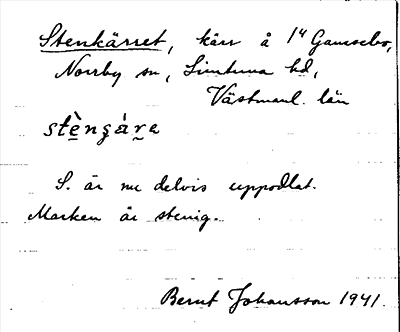 Stenkärret, kärr å 1⁴ Gamsebo,
Norrby sn, Simtuna hd,
Västmanl. län
stè̱nʂára
S. är nu delvis uppodlat.
Marken är stenig.
Bernt Johansson 1941.